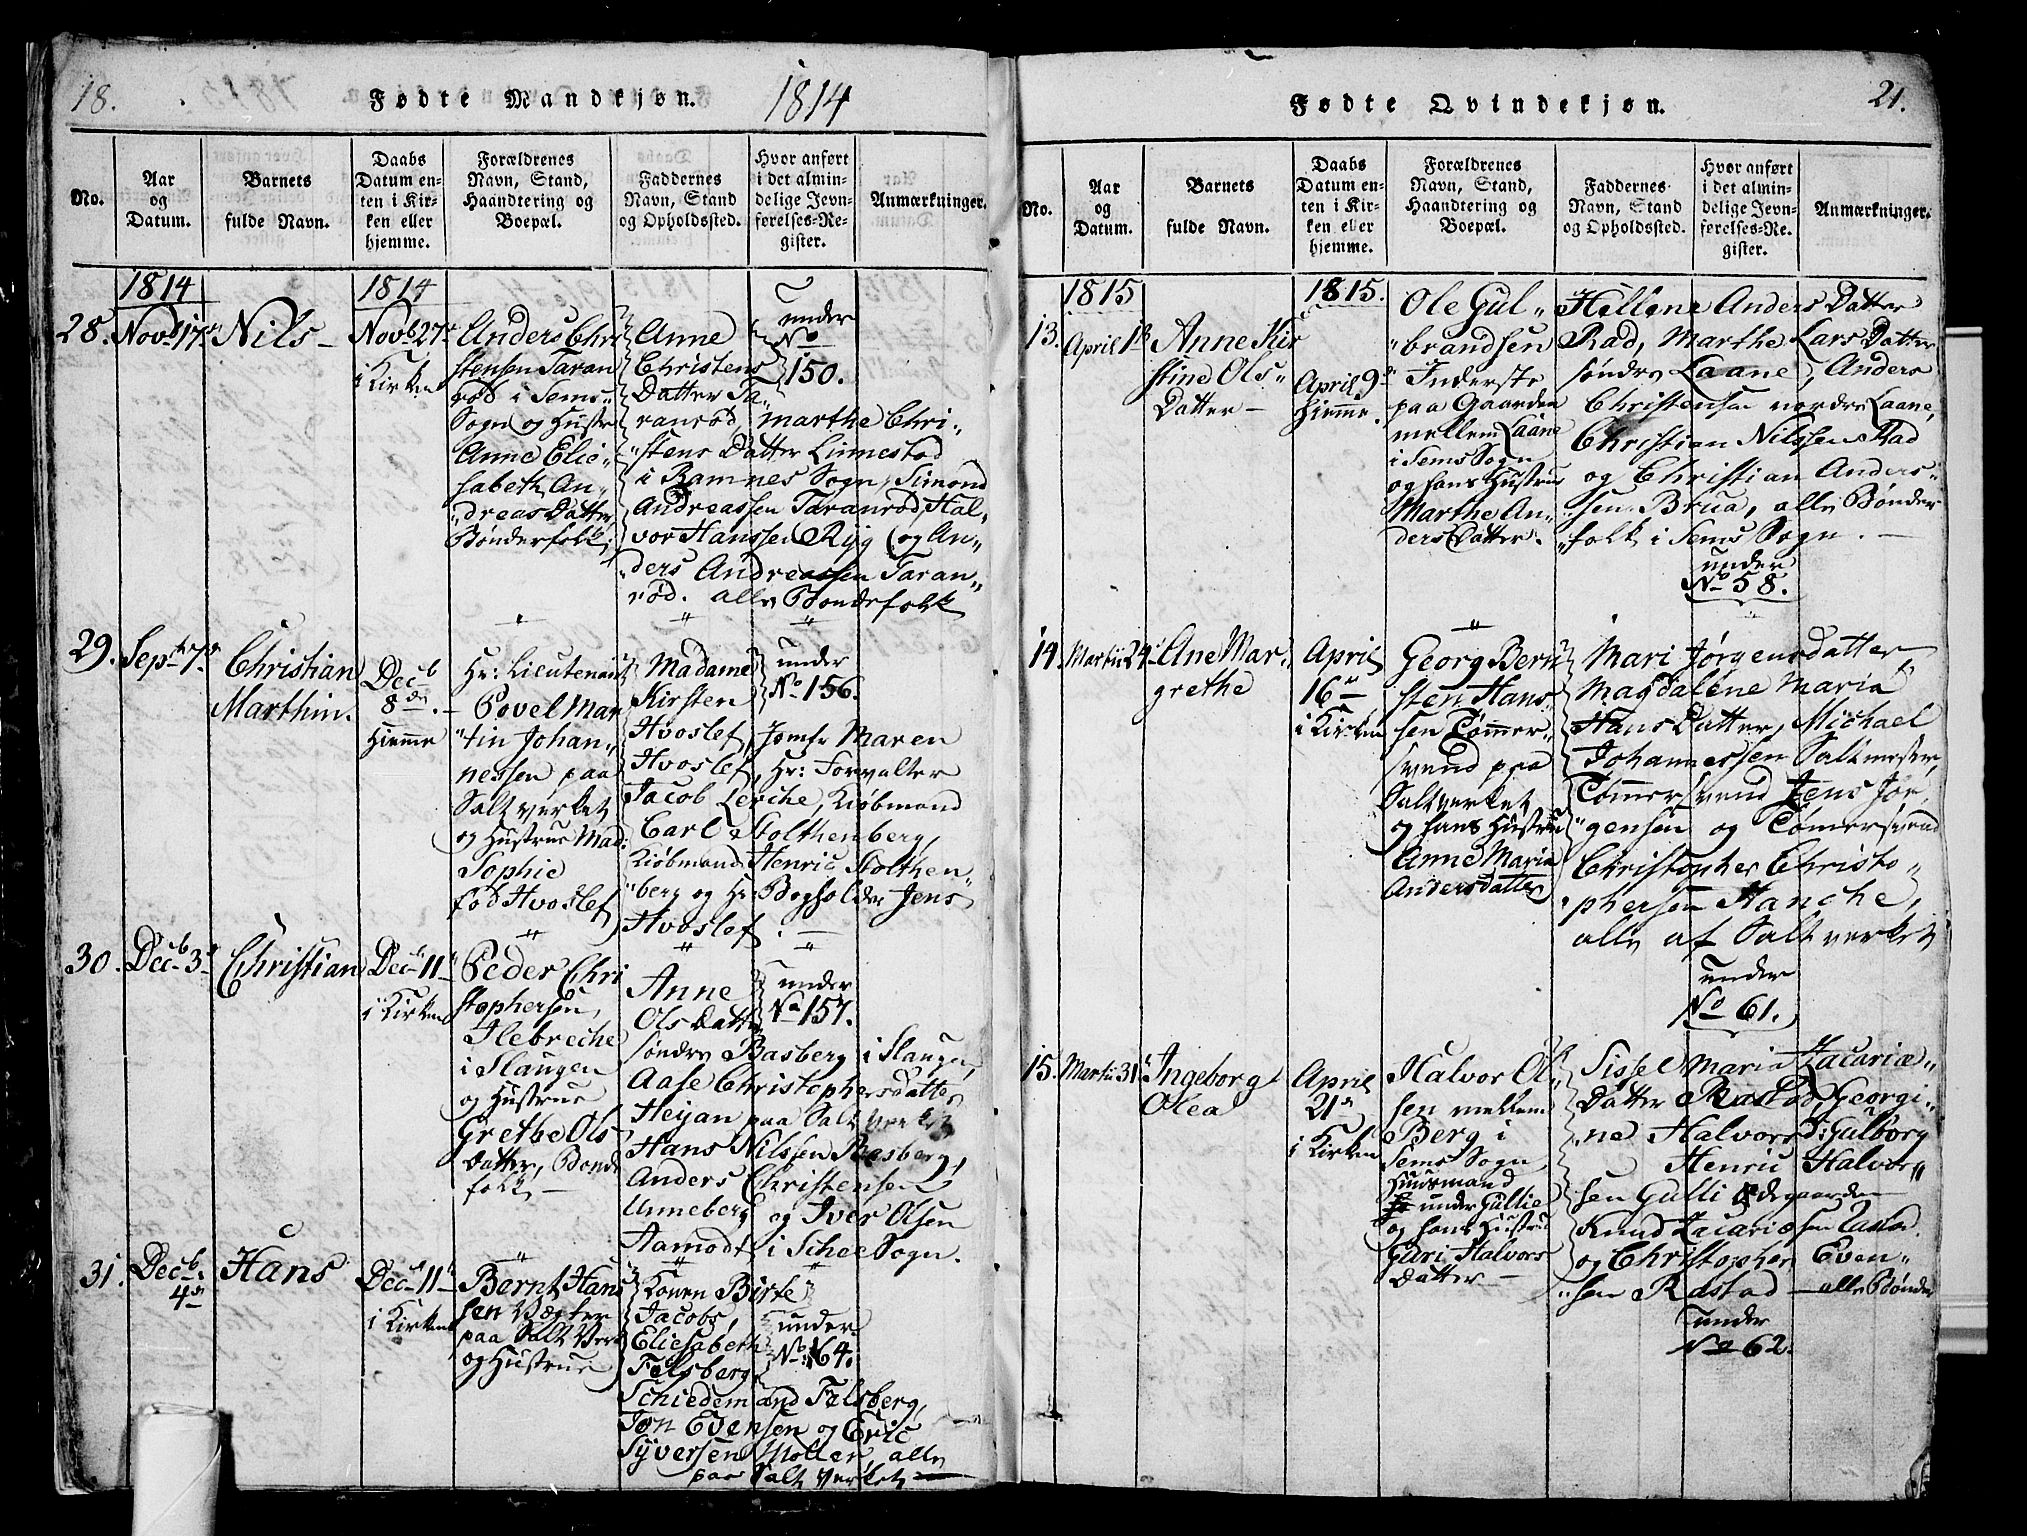 18.
Fødte Mandkjøn.
1814
No.
Aar
og
Datum.
Barnets
fulde Navn.
Daabs
Datum en-
ten i Kir-
ken eller
hjemme.
Forældrenes
Navn, Stand,
Haandtering og
Boepæl.
Faddernes
Navn, Stand
og Opholdssted.
Hvor anført
i det almin-
delige Jevn-
førelses-Re-
gister.
Anmærkninger.
1814
28. Novb 17de
Nils -
1814
Novb 27de
i Kirken
Anders Chri
stensen Taran
rød i Sems
Sogn og Hustr
Anne Elie-
sabeth An-
dreas Datter,
Bønderfolk;
Anne
Christens
Datter Ta-
ranrød, Marthe Chri-
stens Datter Linnestad
i Ramnes Sogn, Simond
Andreassen Taranrød, Hal-
vor Hanssen Ryg og An-
ders Andreassen Taran-
rød. alle Bondefolk
under
No
150.
29. Septb 7de
Christian
Marthin.
Decb
8de.
Hiemme
Hr: Lieutenant
Povel Mar
tin Johan-
nessen paa
Saltverket
og Hustrue Mad:
Sophie
fød Hvoslef
Madame
Kirsten
Hvoslef, Jomfr Maren
Hvoslef, Hr: Forvalter
Jacob Lerche, Kiøbmand
Carl Stolthenberg,
Kiøbmand Henric Stolthen-
berg og Hr Bogholder Jens
Hvoslef.
under
No 156.
30. Decb 3de
Christian
Decb 11te
i Kirken
Peder Chri
stophersen,
Ilebreche
i Slaugen
og Hustrue
Grethe Ols
Datter, Bonde
folk -
Anne
Ols Datter
søndre Basberg i Slaugen,
Aase Christophersdatter
Heyan paa Saltverket
Hans Nilssen Basberg,
Anders Christensen
Unneberg og Iver Olsen
Aamodt i Schee Sogn.
under
No 157.
31. Decb.
4de
Hans
Decb 11te
i Kirken
Bernt Hans
sen Vægter
paa Salt Verk
og Hustrue
Konen Birte
Jacobs,
Eliesabeth
Felsberg,
Schiedemand Felsberg,
Jon Evensen og Eric
Syversen Moller, alle
paa Salt Verket
under
No: 164.
Fødte Qvindekjøn.
21.
No.
Aar
og
Datum.
Barnets
fulde Navn.
Daabs
Datum en-
ten i Kir-
ken eller
hjemme.
Forældrenes
Navn, Stand,
Haandtering og
Boepæl.
Faddernes
Navn, Stand
og Opholdssted.
Hvor anført
i det almin-
delige Jevn-
førelses-Re-
gister.
Anmærkninger.
1815
13.
April 1ste
Anne Kir
stine Ols
Datter -
1815.
April 9de
Hiemme.
Ole Gul-
brandsen
Inderste
paa Gaarden
mellem Laane
i Sems Sogn
og hans Hustrue
Marthe An-
ders Datter.
Hellene Anders Datter
Rad, Marthe Lars Datter
søndre Laane, Anders
Christensen nordre Laane,
Christian Nilssen Rad
og Christian Anders-
sen Brua, alle Bønder
folk i Sems Sogn. -
under
No 58.
14. Martii 24de
Ane Mar-
grethe
April
16de
i Kirken
Georg Bern
sten Hans-
sen Tømmer-
svend paa
Saltverket
og hans Hustrue
Anne Maria
Andersdatter
Mari Jørgensdatter
Magdalene Maria
Hans Datter, Michael
Johannessen Saltmester,
Tømmersvend Jens Jør-
gensen og Tømersvend
Christopher Christo-
phersen Hanche,
alle af Saltverket
under
No 61.
15. Martii 31te
Ingeborg
Olea
April
21de
i Kirken
Halvor Ol-
sen mellem
Berg i
Sems Sogn
Huusmand
under Gullie
og hans Hustrue
Guri Halvors
Datter -
Sissel Maria Zacariæ-
Datter Rastad, Georgi-
ne Halvors D: Gulborg
Henric Halvor-
sen Gulli Ødegaarden
Knud Zacariæsen Rastad
og Christopher Even-
sen Rastad - alle Bønder
under
No 62.